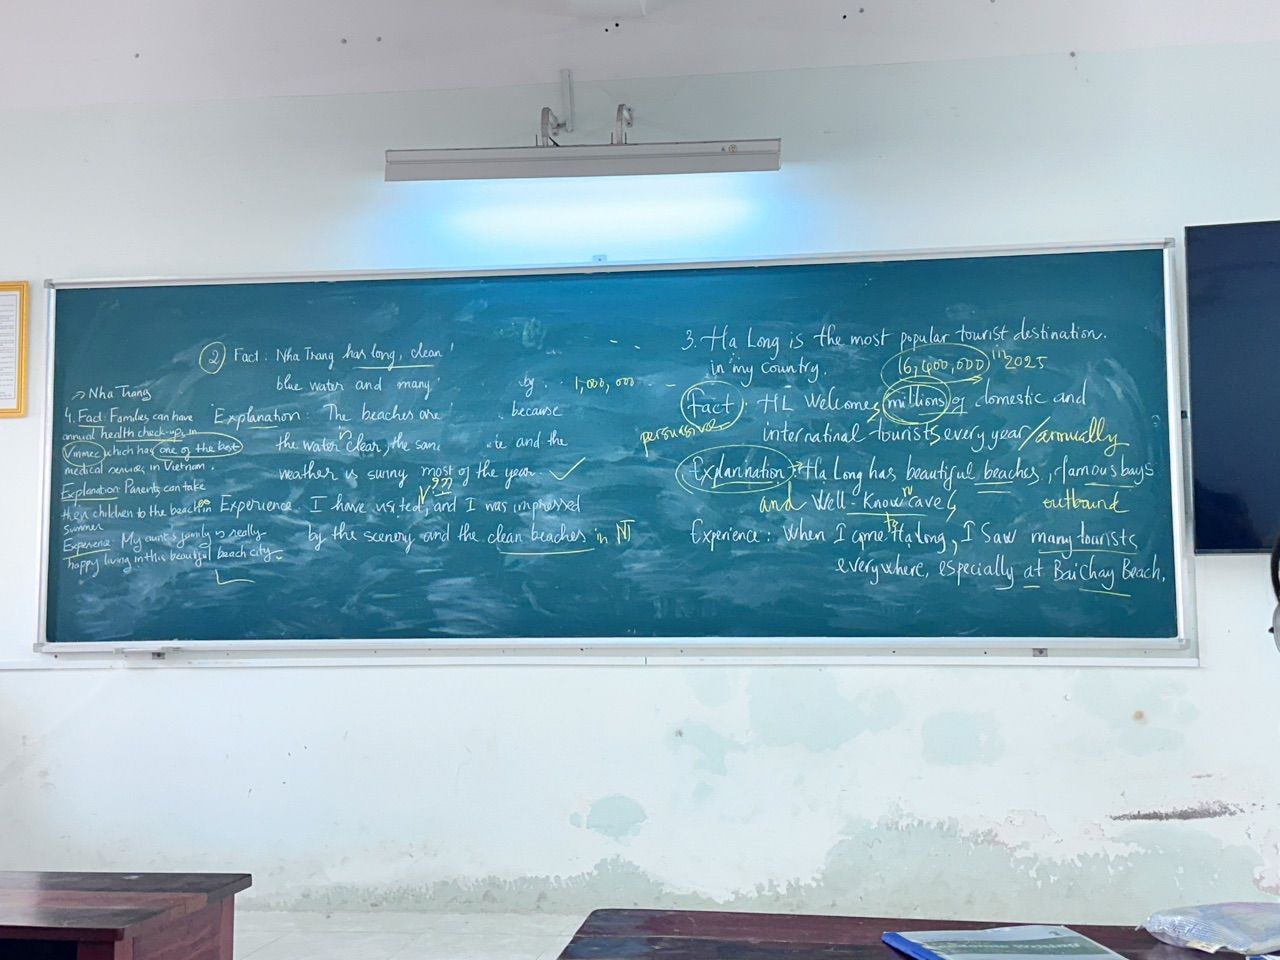 → Nha Trang
4. Fact: Families can have
annual health check-ups in
Vinmec, which has one of the best
medical services in Vietnam.
Explanation: Parents can take
their children to the beach in
summer
Experience: My aunt's family is really
happy living in this beautiful beach city.
② Fact: Nha Trang has long, clean
blue water and many
by 1,000,000
Explanation: The beaches are because
the water is clear, the and the
weather is sunny most of the year. ✓
Experience. I have visited, and I was impressed
by the scenery and the clean beaches in NT
3. Ha Long is the most popular tourist destination.
in my country. (16,400,000) in 2025
Fact: HL Welcomes millions of domestic and
persuasive
internatinal tourists every year / annually
Explannation: Ha Long has beautiful beaches, famous bays
and Well-Known caves outbound
Experience: When I came to Ha Long, I Saw many tourists
everywhere, especially at Bai Chay Beach.